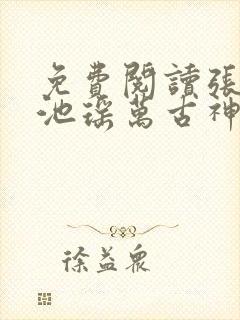 免費閱讀張
池瑤萬古神
徐益眾